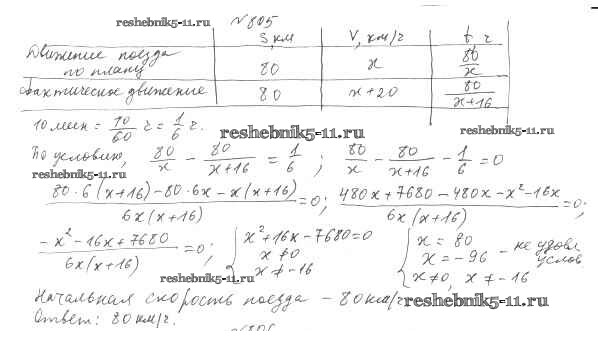 reshebnik5-11.ru
№805
S, км V, км/ч t ч
Движение поезда по плану 80 x 80/x
Фактическое движение 80 x+20 80/(x+16)
10 мин = 10/60 ч = 1/6 ч.
reshebnik5-11.ru
reshebnik5-11.ru
По условию, 80/x - 80/(x+16) = 1/6 ; 80/x - 80/(x+16) - 1/6 = 0
reshebnik5-11.ru
(80·6(x+16)-80·6x-x(x+16))/(6x(x+16)) = 0; (480x+7680-480x-x²-16x)/(6x(x+16)) = 0;
(-x²-16x+7680)/(6x(x+16)) = 0; { x²+16x-7680=0 x≠0 x≠-16 { x=80 x=-96 - не удовл услов x≠0, x≠-16
reshebnik5-11.ru
Начальная скорость поезда - 80 км/ч
reshebnik5-11.ru
Ответ: 80 км/ч.